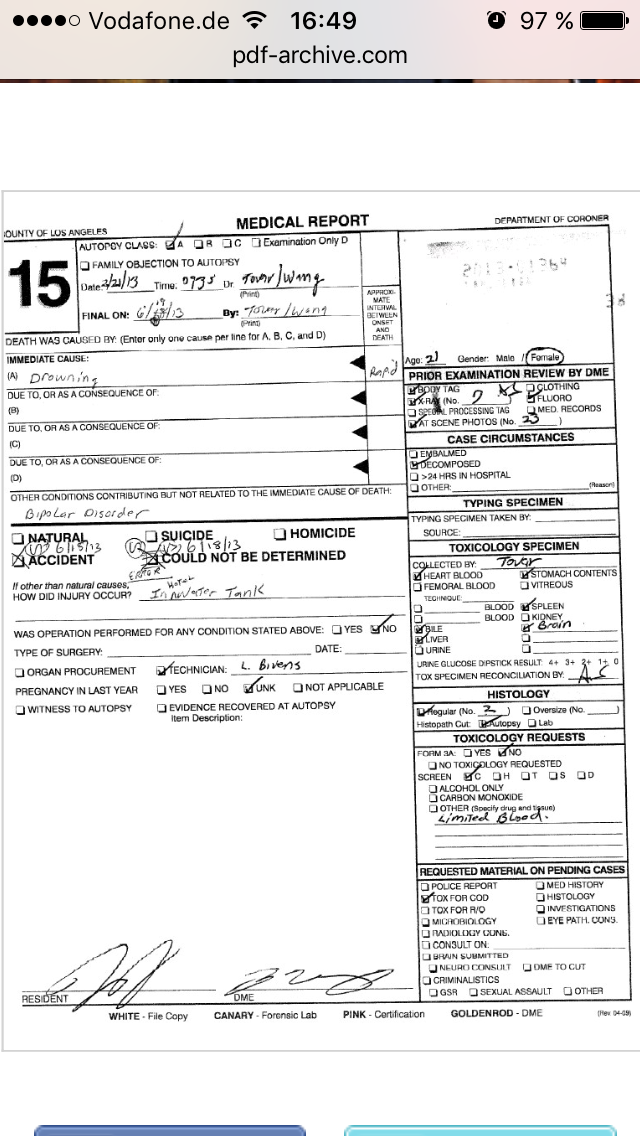 Vodafone.de 16:49 97 %
pdf-archive.com
COUNTY OF LOS ANGELES
MEDICAL REPORT
DEPARTMENT OF CORONER
15
AUTOPSY CLASS: A B C Examination Only D
FAMILY OBJECTION TO AUTOPSY
Date: 2/21/13 Time: 0735 Dr. Tovar/Wang
(Print)
FINAL ON: By: Tovar/Wang
(Print)
APPROXI-
MATE
INTERVAL
BETWEEN
ONSET
AND
DEATH
DEATH WAS CAUSED BY: (Enter only one cause per line for A, B, C, and D)
IMMEDIATE CAUSE:
(A) Drowning
Rapid
DUE TO, OR AS A CONSEQUENCE OF:
(B)
DUE TO, OR AS A CONSEQUENCE OF:
(C)
DUE TO, OR AS A CONSEQUENCE OF:
(D)
OTHER CONDITIONS CONTRIBUTING BUT NOT RELATED TO THE IMMEDIATE CAUSE OF DEATH:
Bipolar Disorder
NATURAL SUICIDE HOMICIDE
6/15/13 6/18/13
ACCIDENT COULD NOT BE DETERMINED
ERROR
If other than natural causes,
HOW DID INJURY OCCUR? In Water Tank
Hotel
WAS OPERATION PERFORMED FOR ANY CONDITION STATED ABOVE: YES NO
TYPE OF SURGERY: DATE:
ORGAN PROCUREMENT TECHNICIAN: L. Bivens
PREGNANCY IN LAST YEAR YES NO UNK NOT APPLICABLE
WITNESS TO AUTOPSY EVIDENCE RECOVERED AT AUTOPSY
Item Description:
RESIDENT
DME
Age: 21 Gender: Male / Female
PRIOR EXAMINATION REVIEW BY DME
BODY TAG CLOTHING
X-RAY (No. ) FLUORO
SPECIAL PROCESSING TAG MED. RECORDS
AT SCENE PHOTOS (No. 23 )
CASE CIRCUMSTANCES
EMBALMED
DECOMPOSED
>24 HRS IN HOSPITAL
OTHER: (Reason)
TYPING SPECIMEN
TYPING SPECIMEN TAKEN BY:
SOURCE:
TOXICOLOGY SPECIMEN
COLLECTED BY: Tovar
HEART BLOOD STOMACH CONTENTS
FEMORAL BLOOD VITREOUS
TECHNIQUE:
BLOOD SPLEEN
BLOOD KIDNEY
BILE Brain
LIVER
URINE
URINE GLUCOSE DIPSTICK RESULT: 4+ 3+ 2+ 1+ 0
TOX SPECIMEN RECONCILIATION BY: AS
HISTOLOGY
Regular (No. 2 ) Oversize (No. )
Histopath Cut: Autopsy Lab
TOXICOLOGY REQUESTS
FORM 3A: YES NO
NO TOXICOLOGY REQUESTED
SCREEN C H T S D
ALCOHOL ONLY
CARBON MONOXIDE
OTHER (Specify drug and tissue)
Limited Blood.
REQUESTED MATERIAL ON PENDING CASES
POLICE REPORT MED HISTORY
TOX FOR COD HISTOLOGY
TOX FOR R/O INVESTIGATIONS
MICROBIOLOGY EYE PATH. CONS.
RADIOLOGY CONS.
CONSULT ON:
BRAIN SUBMITTED
NEURO CONSULT DME TO CUT
CRIMINALISTICS
GSR SEXUAL ASSAULT OTHER
WHITE - File Copy CANARY - Forensic Lab PINK - Certification GOLDENROD - DME (Rev. 04-09)